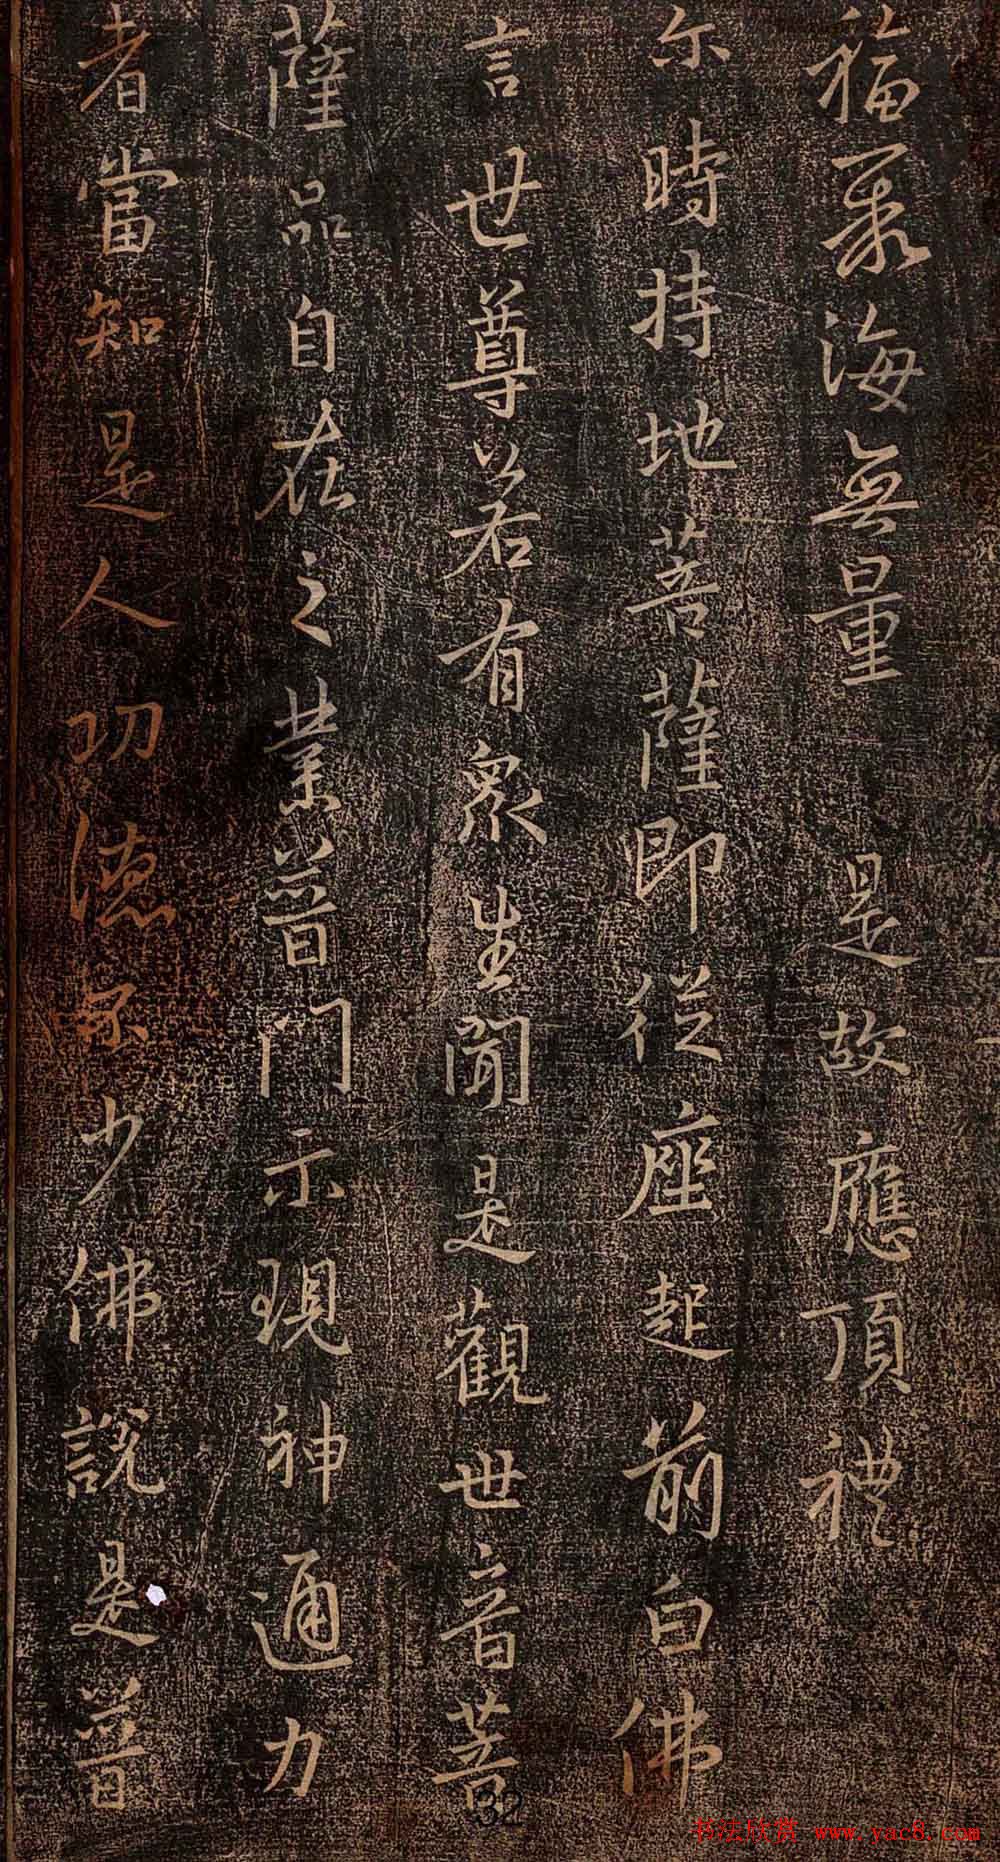 福聚海無量 是故應頂禮
尔時持地菩薩即從座起前白佛
言世尊若有衆生聞是觀世音菩
薩品自在之業普門示現神通力
者當知是人功德不少佛說是普
32
书法欣赏 www.yac8.com